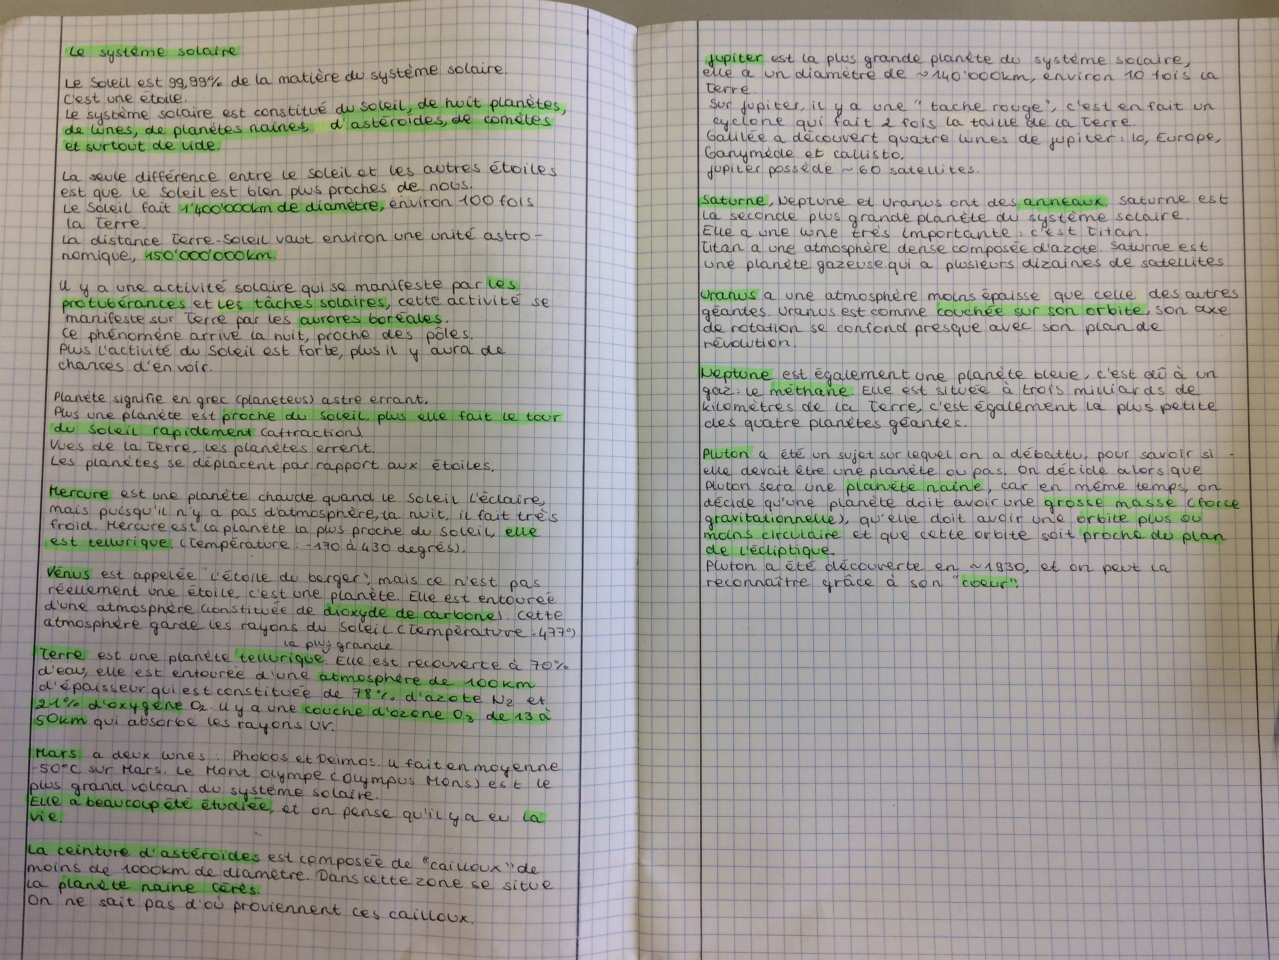 Le système solaire
Le Soleil est 99,99% de la matière du système solaire.
C'est une étoile.
Le système solaire est constitué du Soleil, de huit planètes,
de lunes, de planètes naines, d'astéroïdes, de comètes
et surtout de vide.
La seule différence entre le Soleil et les autres étoiles
est que le Soleil est bien plus proches de nous.
Le Soleil fait 1'400'000km de diamètre, environ 100 fois
la Terre.
La distance Terre-Soleil vaut environ une unité astro-
nomique, 150'000'000km.
Il y a une activité solaire qui se manifeste par les
protubérances et les tâches solaires, cette activité se
manifeste sur Terre par les aurores boréales.
Ce phénomène arrive la nuit, proche des pôles.
Plus l'activité du Soleil est forte, plus il y aura de
chances d'en voir.
Planète signifie en grec (planeteus) astre errant.
Plus une planète est proche du soleil plus elle fait le tour
du Soleil rapidement (attraction).
Vues de la Terre, les planètes errent.
Les planètes se déplacent par rapport aux étoiles.
Mercure est une planète chaude quand le Soleil l'éclaire,
mais puisqu'il n'y a pas d'atmosphère, la nuit, il fait très
froid. Mercure est la planète la plus proche du Soleil, elle
est tellurique (Température : -170 à 430 degrés).
Vénus est appelée "l'étoile du berger", mais ce n'est pas
réellement une étoile, c'est une planète. Elle est entourée
d'une atmosphère (constituée de dioxyde de carbone). Cette
atmosphère garde les rayons du Soleil (Température : 477°)
la plus grande
Terre est une planète tellurique. Elle est recouverte à 70%
d'eau, elle est entourée d'une atmosphère de 100km
d'épaisseur qui est constituée de 78% d'azote N2 et
21% d'oxygène O2. Il y a une couche d'ozone O3 de 13 à
50km qui absorbe les rayons UV.
Mars a deux lunes : Phobos et Deimos. Il fait en moyenne
-50°C sur Mars. Le Mont Olympe (Olympus Mons) est le
plus grand volcan du système solaire.
Elle a beaucoup été étudiée, et on pense qu'il y a eu la
vie.
La ceinture d'astéroïdes est composée de "cailloux" de
moins de 1000km de diamètre. Dans cette zone se situe
la planète naine Cérès.
On ne sait pas d'où proviennent ces cailloux.
Jupiter est la plus grande planète du système solaire,
elle a un diamètre de ~140'000km, environ 10 fois la
Terre.
Sur Jupiter, il y a une "tache rouge", c'est en fait un
cyclone qui fait 2 fois la taille de la Terre.
Galilée a découvert quatre lunes de Jupiter : Io, Europe,
Ganymède et Callisto.
Jupiter possède ~60 satellites.
Saturne, Neptune et Uranus ont des anneaux. Saturne est
la seconde plus grande planète du système solaire.
Elle a une lune très importante : c'est Titan.
Titan a une atmosphère dense composée d'azote. Saturne est
une planète gazeuse qui a plusieurs dizaines de satellites
Uranus a une atmosphère moins épaisse que celle des autres
géantes. Uranus est comme couchée sur son orbite, son axe
de rotation se confond presque avec son plan de
révolution.
Neptune est également une planète bleue, c'est dû à un
gaz : le méthane. Elle est située à trois milliards de
kilomètres de la Terre, c'est également la plus petite
des quatre planètes géantes.
Pluton a été un sujet sur lequel on a débattu, pour savoir si
elle devait être une planète ou pas. On décide alors que
Pluton sera une planète naine, car en même temps, on
décide qu'une planète doit avoir une grosse masse (force
gravitationnelle), qu'elle doit avoir une orbite plus ou
moins circulaire et que cette orbite soit proche du plan
de l'écliptique.
Pluton a été découverte en ~1930, et on peut la
reconnaître grâce à son "coeur".